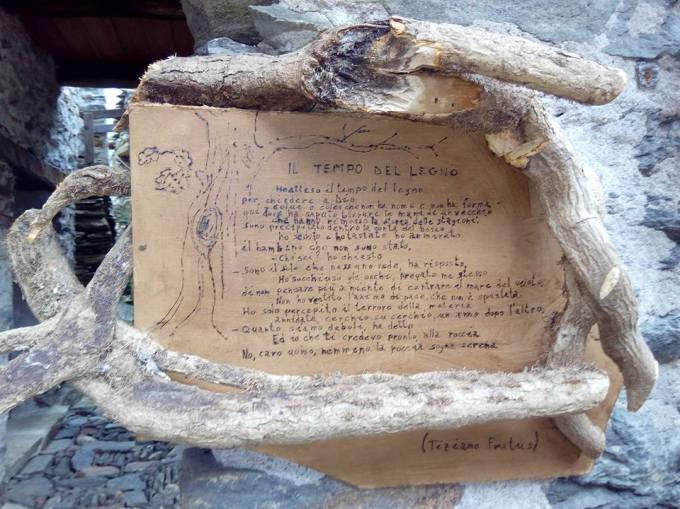 IL TEMPO DEL LEGNO
Ho atteso il tempo del legno
per chiedere a Dio
o colei che non ha nome e non ha forma
qui dove ha saputo le mani di un vecchio
che hanno memoria la delle stagioni.
sono precipitato dentro la del bosco
ho scosso e ho ammirato
il bambino che non sono stato,
- Chi sei? ho chiesto
- Sono il solo che nessuno vede, ha risposto,
Ho socchiuso gli occhi, pregato me stesso
di non pensare più a niente di entrare al mare del vuoto.
Non ho vestito l'anima di pace, che non è spostata
Ho solo percepito il terrore della materia
annidata cerchio su cerchio, un anno dopo l'altro,
- Quanto siamo deboli, ha detto
Ed io che ti credevo pronto alla roccia
No, caro uomo, nemmeno la roccia sogna serena
(Tiziano Fratus)